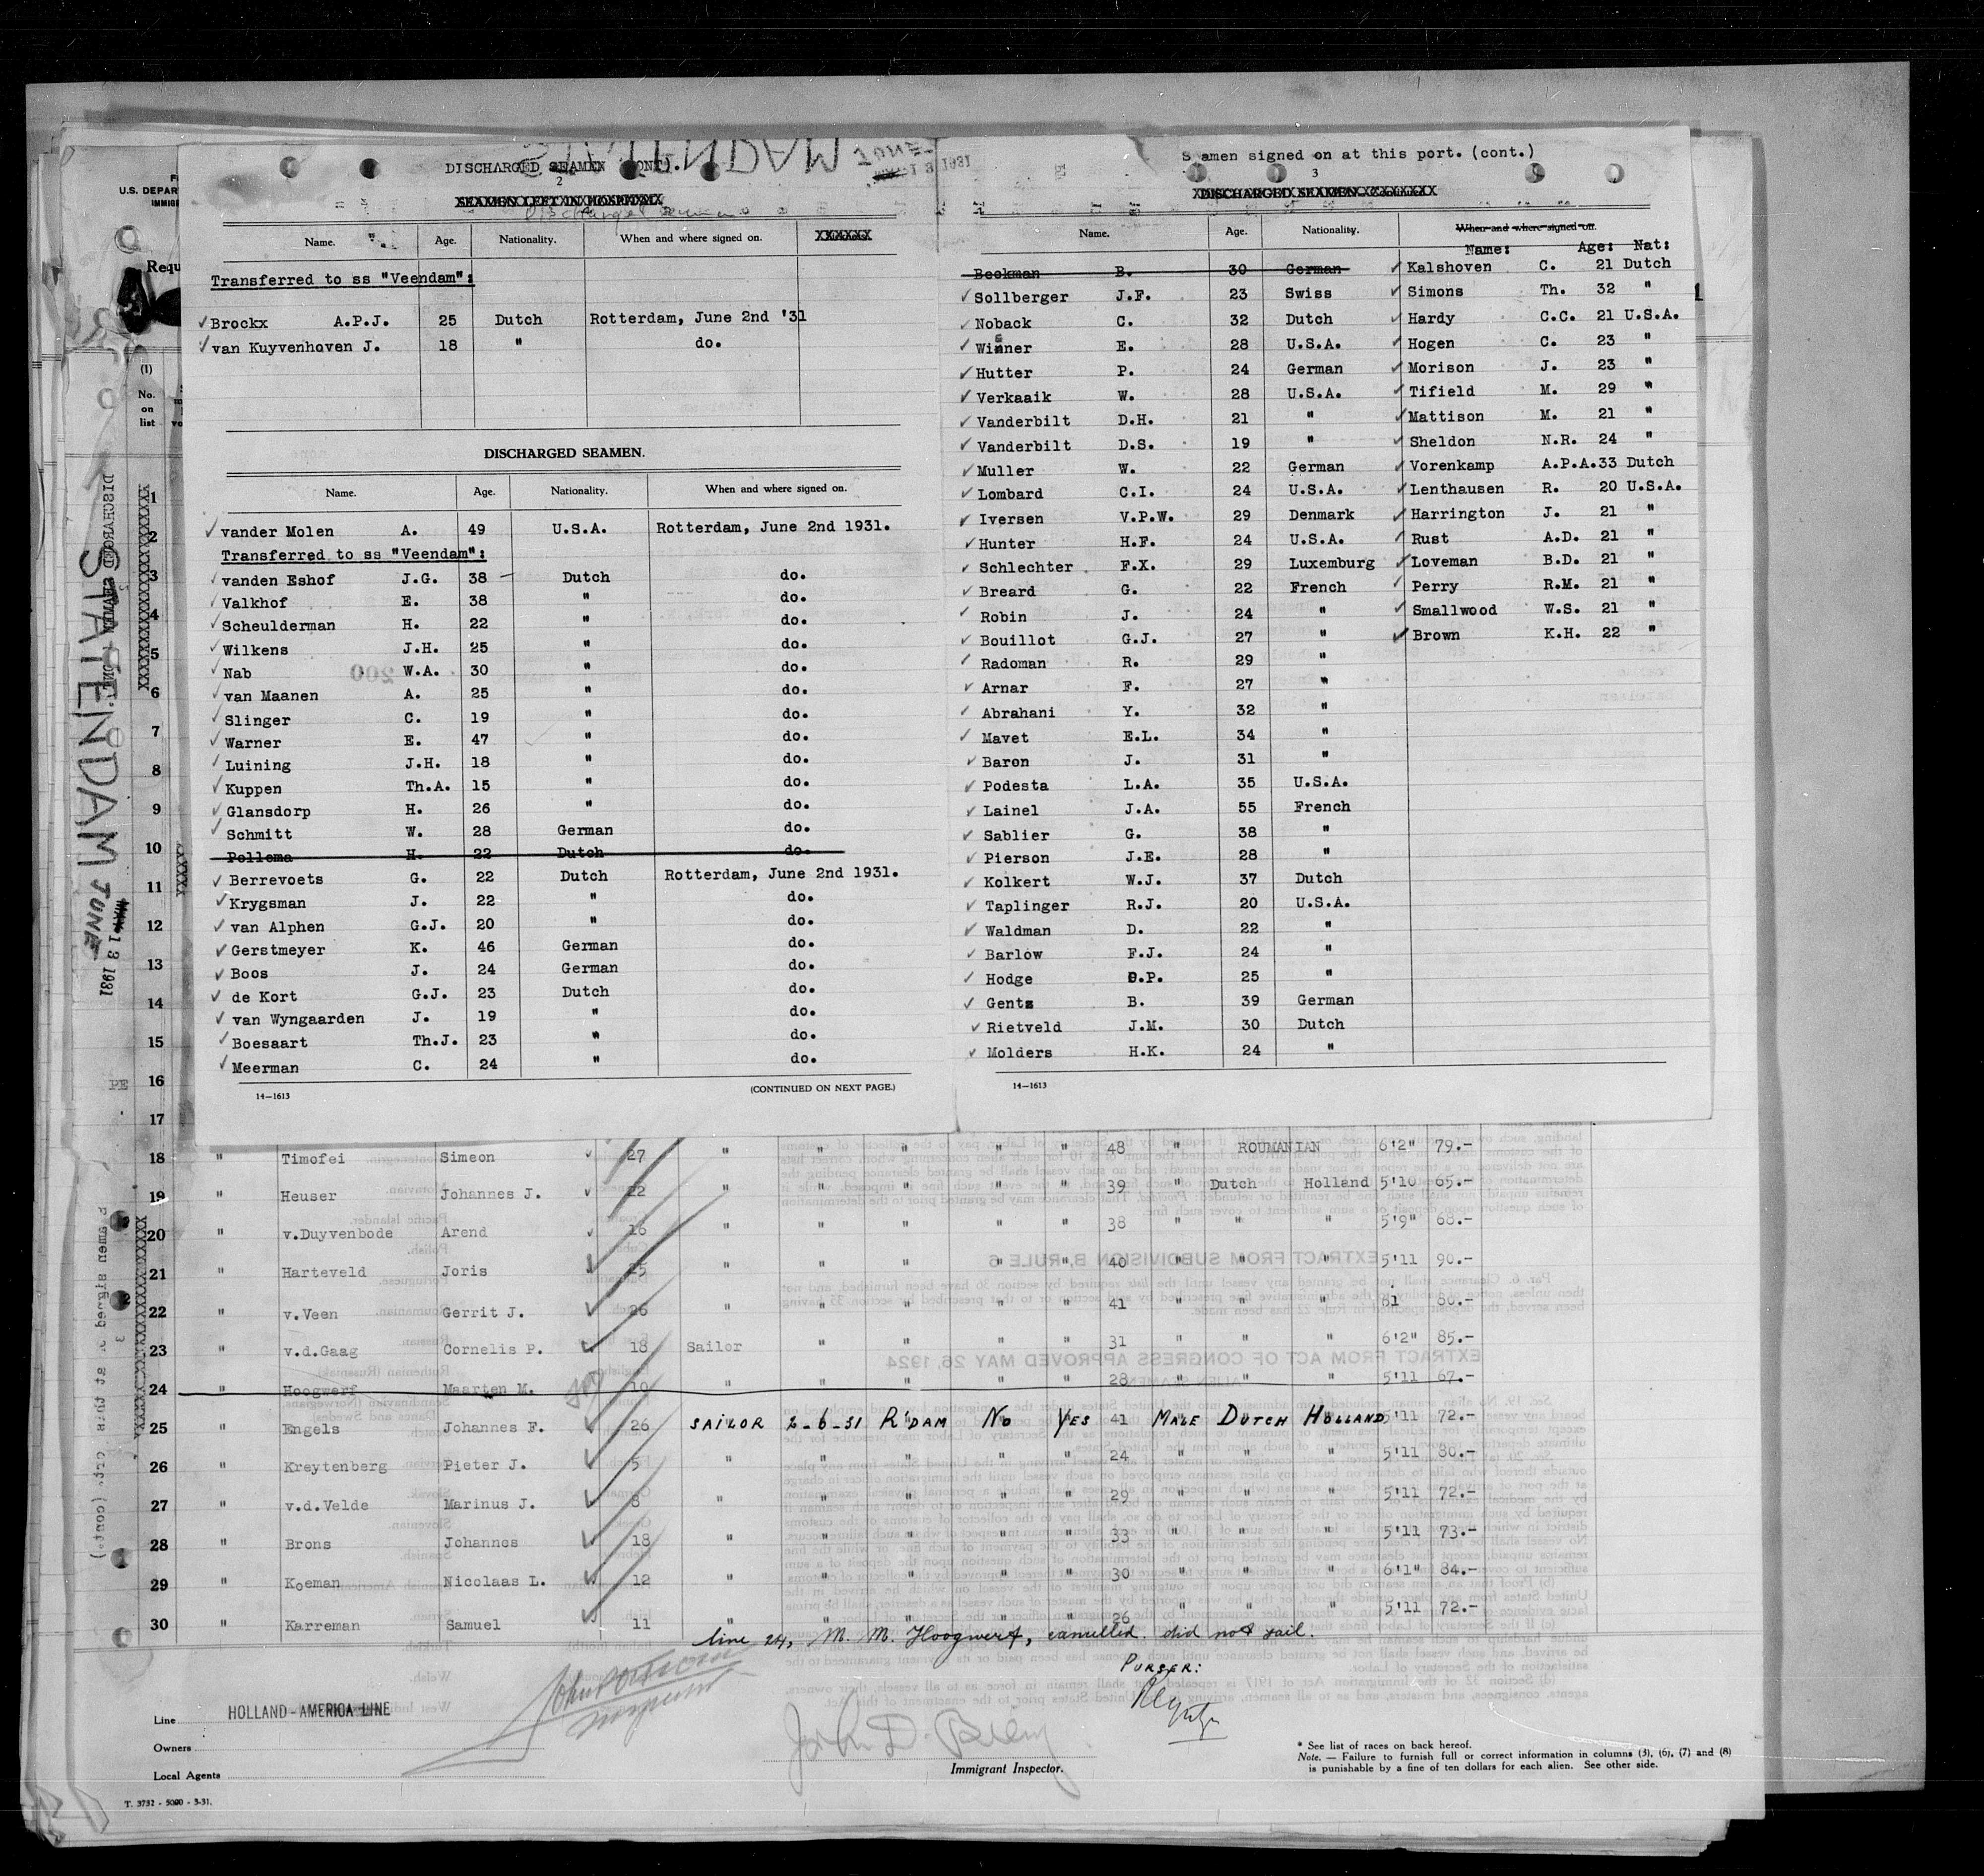 STATENDAM JUNE 13 1931
DISCHARGED SEAMEN (CONT).
2
SEAMEN LEFT IN HOSPITAL
Discharged seamen
Name. Age. Nationality. When and where signed on.
Transferred to ss "Veendam":
Brockx A.P.J. 25 Dutch Rotterdam, June 2nd '31
van Kuyvenhoven J. 18 " do.
DISCHARGED SEAMEN.
Name. Age. Nationality. When and where signed on.
vander Molen A. 49 U.S.A. Rotterdam, June 2nd 1931.
Transferred to ss "Veendam":
vanden Eshof J.G. 38 Dutch do.
Valkhof E. 38 " do.
Scheulderman H. 22 " do.
Wilkens J.H. 25 " do.
Nab W.A. 30 " do.
van Maanen A. 25 " do.
Slinger C. 19 " do.
Warner E. 47 " do.
Luining J.H. 18 " do.
Kuppen Th.A. 15 " do.
Glansdorp H. 26 " do.
Schmitt W. 28 German do.
Pollema H. 22 Dutch do.
Berrevoets G. 22 Dutch Rotterdam, June 2nd 1931.
Krygsman J. 22 " do.
van Alphen G.J. 20 " do.
Gerstmeyer K. 46 German do.
Boos J. 24 German do.
de Kort G.J. 23 Dutch do.
van Wyngaarden J. 19 " do.
Boesaart Th.J. 23 " do.
Meerman C. 24 " do.
14—1613 (CONTINUED ON NEXT PAGE.)
S amen signed on at this port. (cont.)
3
DISCHARGED SEAMEN—Continued
Name. Age. Nationality. When and where signed on.
Name: Age: Nat:
Beekman B. 30 German Kalshoven C. 21 Dutch
Sollberger J.F. 23 Swiss Simons Th. 32 "
Noback C. 32 Dutch Hardy C.C. 21 U.S.A.
Wisner E. 28 U.S.A. Hogen C. 23 "
Hutter P. 24 German Morison J. 23 "
Verkaaik W. 28 U.S.A. Tifield M. 29 "
Vanderbilt D.H. 21 " Mattison M. 21 "
Vanderbilt D.S. 19 " Sheldon N.R. 24 "
Muller W. 22 German Vorenkamp A.P.A. 33 Dutch
Lombard C.I. 24 U.S.A. Lenthausen R. 20 U.S.A.
Iversen V.P.W. 29 Denmark Harrington J. 21 "
Hunter H.F. 24 U.S.A. Rust A.D. 21 "
Schlechter F.X. 29 Luxemburg Loveman B.D. 21 "
Breard G. 22 French Perry R.M. 21 "
Robin J. 24 " Smallwood W.S. 21 "
Bouillot G.J. 27 " Brown K.H. 22 "
Radoman R. 29 "
Arnar F. 27 "
Abrahani Y. 32 "
Mavet E.L. 34 "
Baron J. 31 "
Podesta L.A. 35 U.S.A.
Lainel J.A. 55 French
Sablier G. 38 "
Pierson J.E. 28 "
Kolkert W.J. 37 Dutch
Taplinger R.J. 20 U.S.A.
Waldman D. 22 "
Barlow F.J. 24 "
Hodge O.P. 25 "
Gentz B. 39 German
Rietveld J.M. 30 Dutch
Molders H.K. 24 "
14—1613
U.S. DEPAR
IMMIG
Requ
(1)
No. on list
STATENDAM JUNE 13 1931
1
2
3
4
5
6
7
8
9
10
11
12
13
14
15
16
17
18 " Timofei Simeon 27 " " " " " 48 " ROUMANIAN 6'2" 79.-
19 " Heuser Johannes J. 22 " " " " " 39 " Dutch Holland 5'10 65.-
20 " v.Duyvenbode Arend 16 " " " " " 38 " " " 5'9" 68.-
21 " Harteveld Joris 25 " " " " " 40 " " " 5'11 90.-
22 " v.Veen Gerrit J. 26 " " " " " 41 " " " 61 80.-
23 " v.d.Gaag Cornelis P. 18 Sailor " " " " 31 " " " 6'2" 85.-
24 " Hoogwerf Maarten M. 10 " " " " " 28 " " " 5'11 67.-
25 " Engels Johannes F. 26 SAILOR 2-6-31 R'DAM NO YES 41 MALE DUTCH HOLLAND 5'11 72.-
26 " Kreytenberg Pieter J. 5 " " " " " 24 " " " 5'11 80.-
27 " v.d.Velde Marinus J. 8 " " " " " 29 " " " 5'11 72.-
28 " Brons Johannes 18 " " " " " 33 " " " 5'11 73.-
29 " Koeman Nicolaas L. 12 " " " " " 30 " " " 6'1" 84.-
30 " Karreman Samuel 11 " " " " " 26 " " " 5'11 72.-
line 24, M. M. Hoogwerf, cancelled. did not sail.
PURSER:
Line HOLLAND-AMERICA LINE
Owners
Local Agents
John D.
Immigrant Inspector.
* See list of races on back hereof.
Note. — Failure to furnish full or correct information in columns (3), (6), (7) and (8)
is punishable by a fine of ten dollars for each alien. See other side.
T. 3732 - 5000 - 3-31.